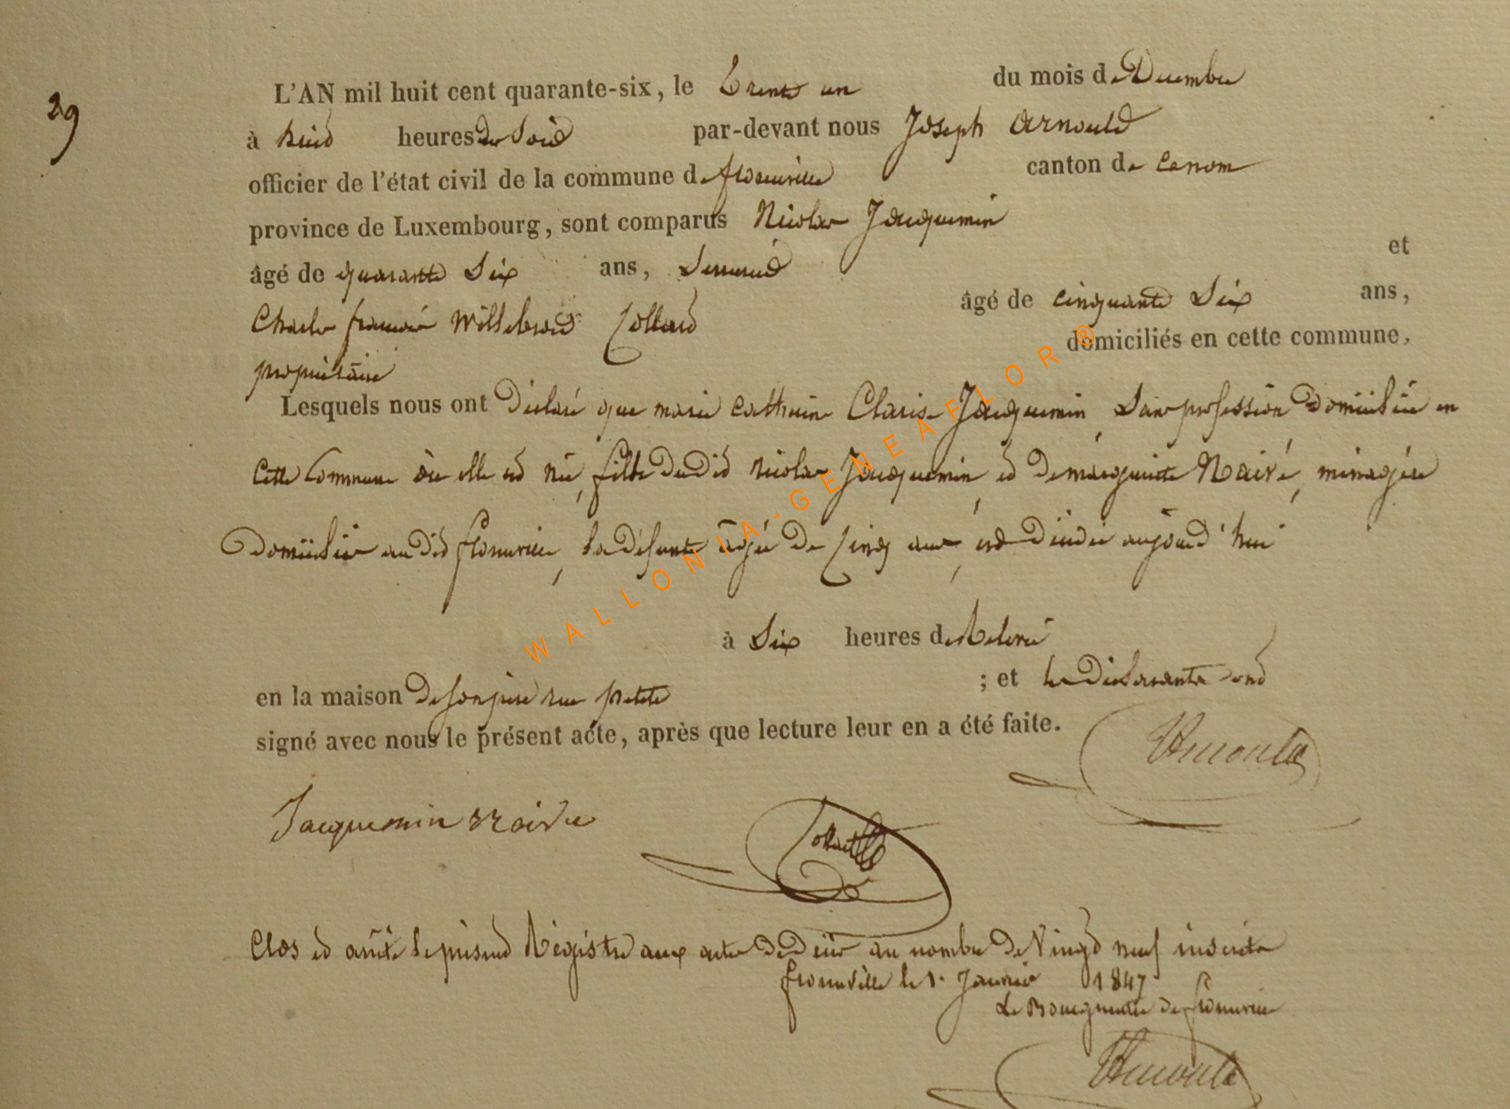 29
L'AN mil huit cent quarante-six, le Trente un du mois de Decembre
à huid heures du Soir par-devant nous Joseph Arnould
officier de l'état civil de la commune de canton de
province de Luxembourg, sont comparus Nicolas Jacquemin
âgé de quarante Six ans, et
Charles françois Willebrord Collard âgé de cinquante Six ans,
propriétaire domiciliés en cette commune,
Lesquels nous ont déclaré que marie Catherine Jacquemin Sans profession domiciliée en
cette Commune où elle est née, fille dudid nicolas Jacquemin, ed de marguerite Nairé, ménagère
domiciliée audid, la défunte agée de Cinq ans, est décédée aujourd'hui
à Six heures de
en la maison de son père rue petite ; et les déclarants ond
signé avec nous le présent acte, après que lecture leur en a été faite.
Arnould
Jacquemin
Collard
Clos ed arrêté le présend Régistre aux actes de décès au nombre de Vingd neuf inscrits
le 1. Janvier 1847
Le Bourgmestre de
Arnould
WALLONIA-GENEAFLOR®